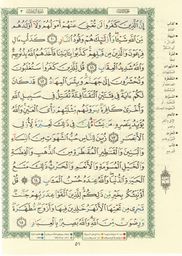 إِنَّ الَّذِينَ كَفَرُوا لَن تُغْنِيَ عَنْهُمْ أَمْوَالُهُمْ وَلَا أَوْلَادُهُم
مِّنَ اللَّهِ شَيْئًا وَأُولَٰئِكَ هُمْ وَقُودُ النَّارِ ١٠ كَدَأْبِ آلِ
فِرْعَوْنَ وَالَّذِينَ مِن قَبْلِهِمْ كَذَّبُوا بِآيَاتِنَا فَأَخَذَهُمُ اللَّهُ
بِذُنُوبِهِمْ وَاللَّهُ شَدِيدُ الْعِقَابِ ١١ قُل لِّلَّذِينَ كَفَرُوا سَتُغْلَبُونَ
وَتُحْشَرُونَ إِلَىٰ جَهَنَّمَ وَبِئْسَ الْمِهَادُ ١٢ قَدْ كَانَ لَكُمْ آيَةٌ
فِي فِئَتَيْنِ الْتَقَتَا فِئَةٌ تُقَاتِلُ فِي سَبِيلِ اللَّهِ
وَأُخْرَىٰ كَافِرَةٌ يَرَوْنَهُم مِّثْلَيْهِمْ رَأْيَ الْعَيْنِ وَاللَّهُ يُؤَيِّدُ
بِنَصْرِهِ مَن يَشَاءُ إِنَّ فِي ذَٰلِكَ لَعِبْرَةً لِّأُولِي
الْأَبْصَارِ ١٣ زُيِّنَ لِلنَّاسِ حُبُّ الشَّهَوَاتِ مِنَ النِّسَاءِ
وَالْبَنِينَ وَالْقَنَاطِيرِ الْمُقَنطَرَةِ مِنَ الذَّهَبِ وَالْفِضَّةِ
وَالْخَيْلِ الْمُسَوَّمَةِ وَالْأَنْعَامِ وَالْحَرْثِ ذَٰلِكَ مَتَاعُ
الْحَيَاةِ الدُّنْيَا وَاللَّهُ عِندَهُ حُسْنُ الْمَآبِ ١٤ قُلْ
أَؤُنَبِّئُكُم بِخَيْرٍ مِّن ذَٰلِكُمْ لِلَّذِينَ اتَّقَوْا عِندَ رَبِّهِمْ جَنَّاتٌ
تَجْرِي مِن تَحْتِهَا الْأَنْهَارُ خَالِدِينَ فِيهَا وَأَزْوَاجٌ مُّطَهَّرَةٌ
وَرِضْوَانٌ مِّنَ اللَّهِ وَاللَّهُ بَصِيرٌ بِالْعِبَادِ ١٥
٥١